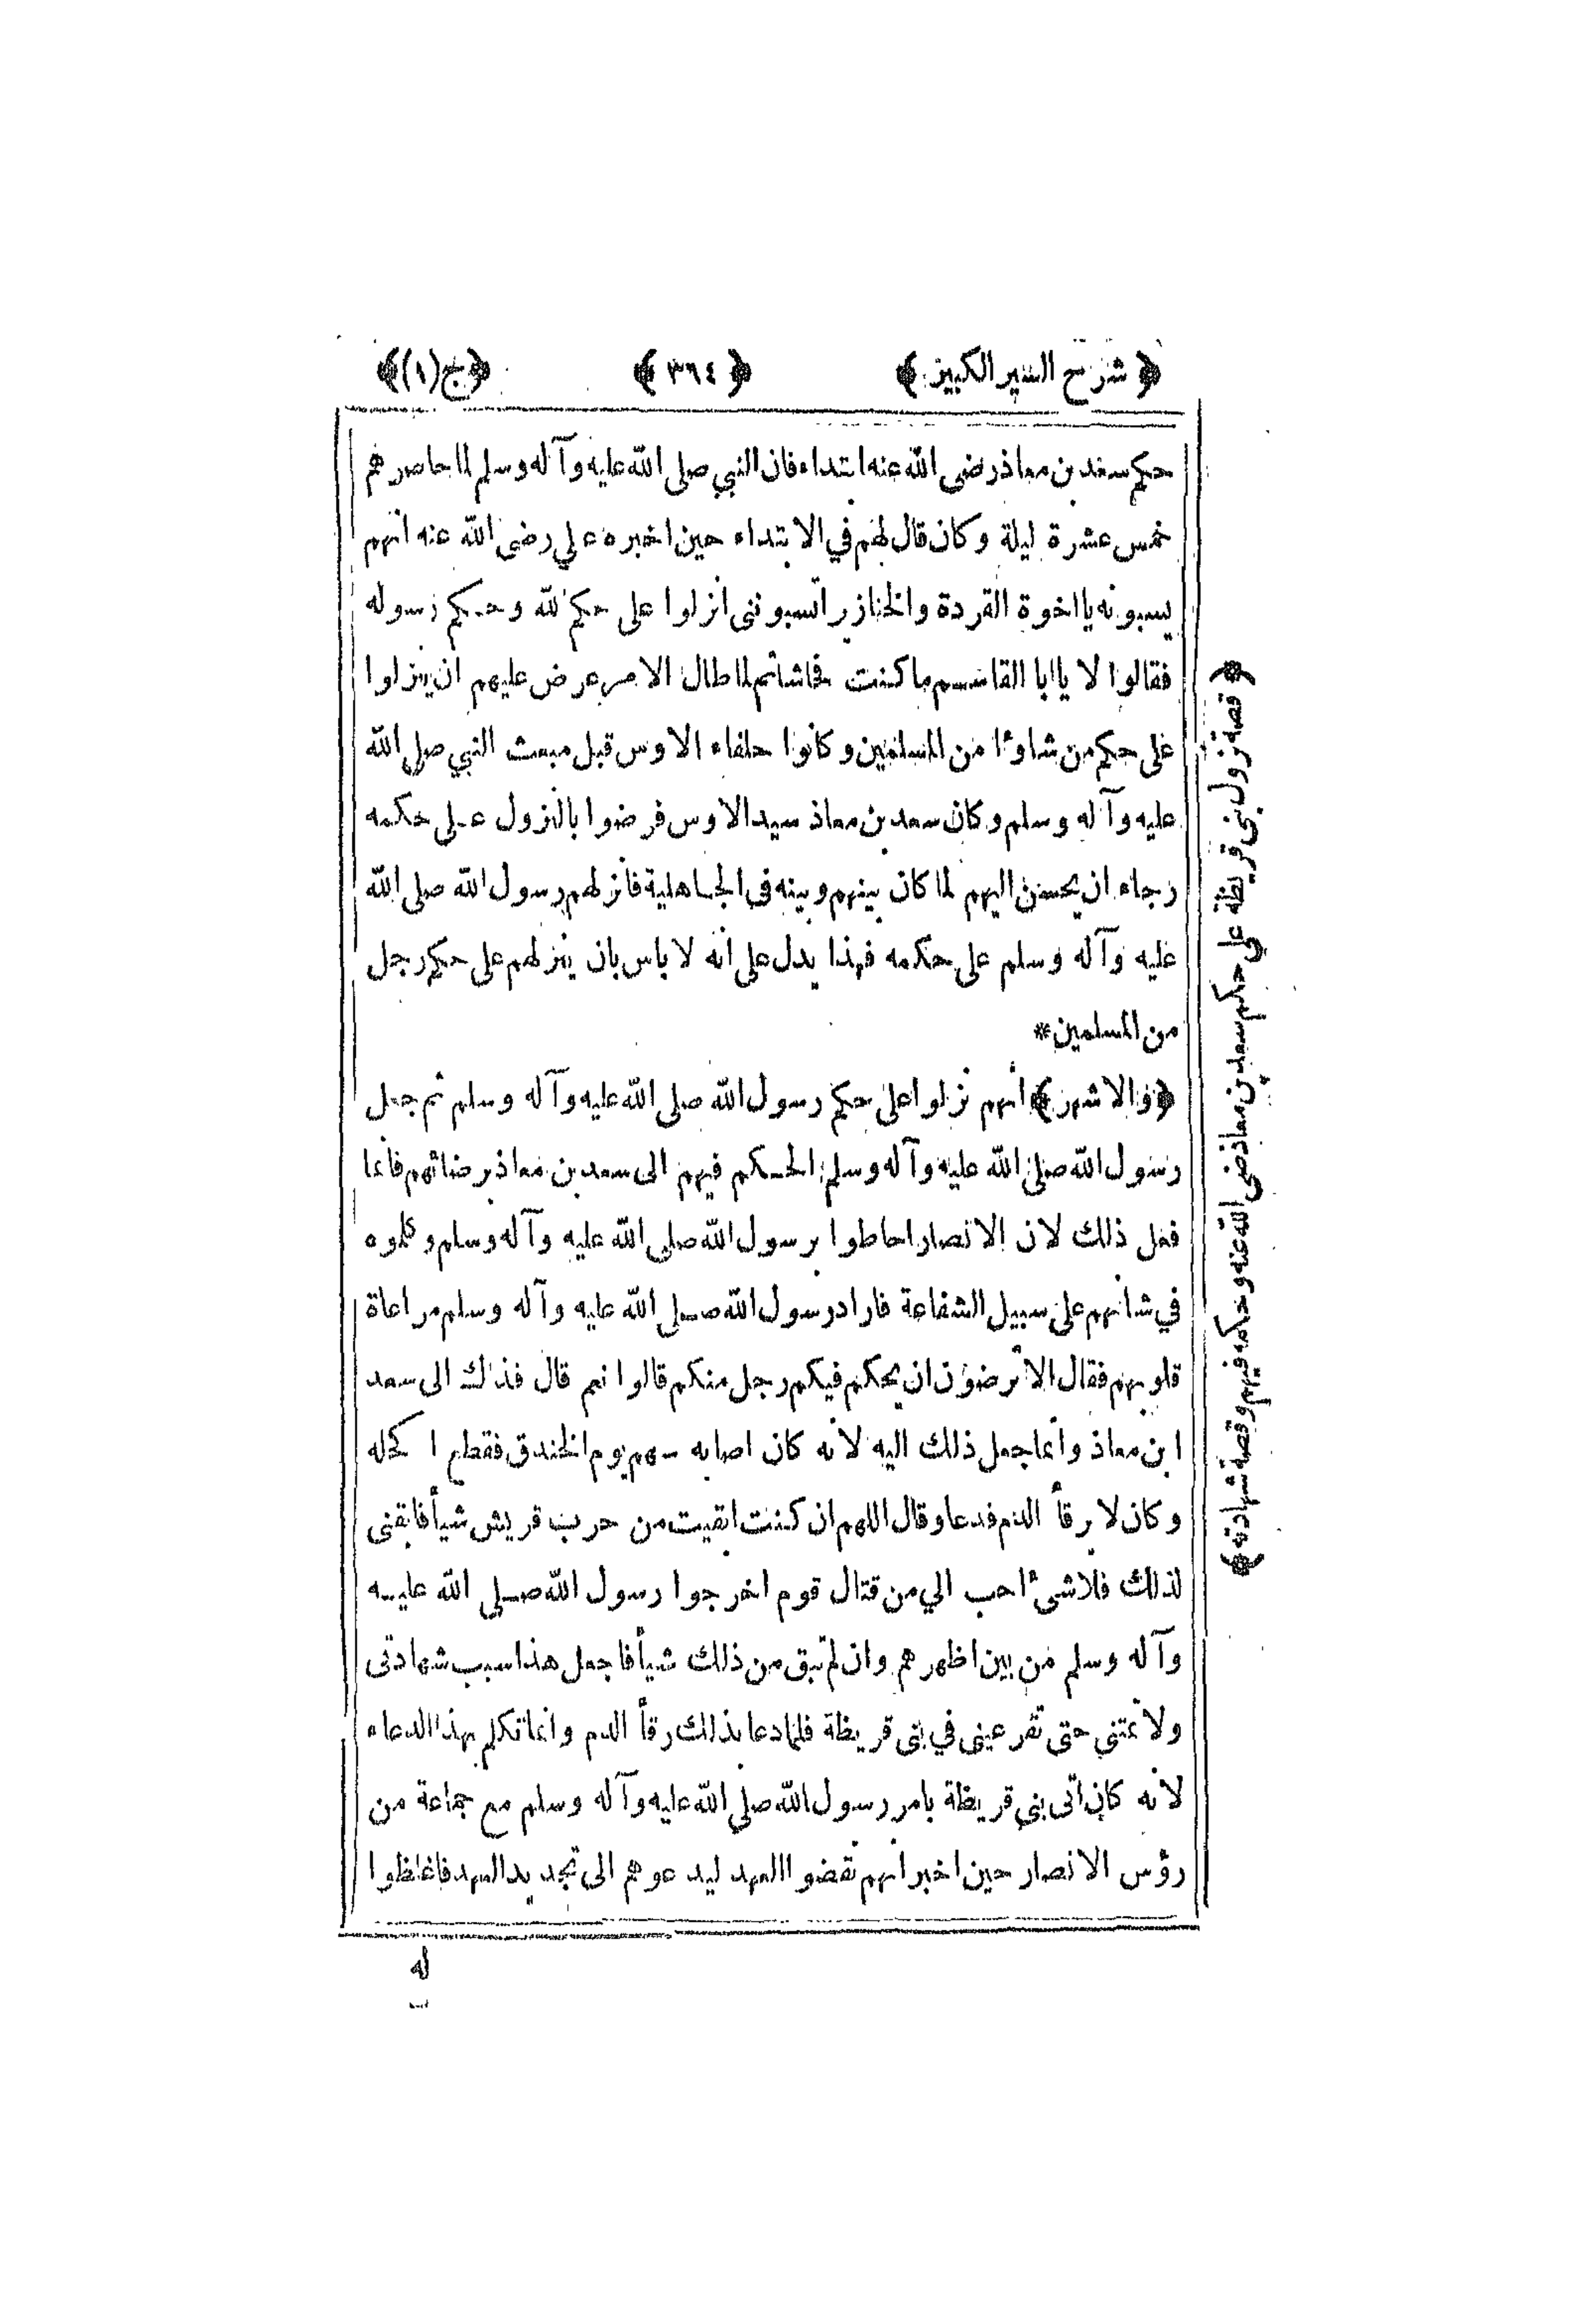 ﴿ شرح السير الكبير ﴾ ﴿ ٣٦٤ ﴾ ﴿ ج (١) ﴾
حكم سعد بن معاذ رضى الله عنه ابتداء فان النبي صلى الله عليه وآله وسلم لما حاصرهم
خمس عشرة ليلة وكان قال لهم في الابتداء حين اخبره علي رضى الله عنه انهم
يسبونه يا اخوة القردة والخنازير اتسبوننى انزلوا على حكم الله وحكم رسوله
فقالوا لا يا ابا القاسم ما كنت فحاشا ثم لما طال الامر عرض عليهم ان ينزلوا
على حكم من شاوءا من المسلمين وكانوا حلفاء الاوس قبل مبعث النبي صلى الله
عليه وآله وسلم وكان سعد بن معاذ سيد الاوس فرضوا بالنزول على حكمه
رجاء ان يحسن اليهم لما كان بينهم وبينه فى الجاهلية فانزلهم رسول الله صلى الله
عليه وآله وسلم على حكمه فهذا يدل على انه لا باس بان ينزلهم على حكم رجل
من المسلمين *
﴿ والاشهر ﴾ انهم نزلوا على حكم رسول الله صلى الله عليه وآله وسلم ثم جعل
رسول الله صلى الله عليه وآله وسلم الحكم فيهم الى سعد بن معاذ برضائهم فانما
فعل ذلك لان الانصار احاطوا برسول الله صلى الله عليه وآله وسلم وكلموه
في شانهم على سبيل الشفاعة فاراد رسول الله صلى الله عليه وآله وسلم مراعاة
قلوبهم فقال الا ترضون ان يحكم فيكم رجل منكم قالوا نعم قال فذلك الى سعد
ابن معاذ وانما جعل ذلك اليه لانه كان اصابه سهم يوم الخندق فقطع اكحله
وكان لا يرقأ الدم فدعا وقال اللهم ان كنت ابقيت من حرب قريش شيأ فابقنى
لذلك فلا شئ احب الي من قتال قوم اخرجوا رسول الله صلى الله عليه
وآله وسلم من بين اظهرهم وان لم تبق من ذلك شيأ فاجعل هذا سبب شهادتى
ولا تمتني حتى تقر عينى في بنى قريظة فلما دعا بذلك رقأ الدم وانما تكلم بهذا الدعاء
لانه كان اتى بنى قريظة بامر رسول الله صلى الله عليه وآله وسلم مع جماعة من
رؤس الانصار حين اخبر انهم نقضوا العهد ليدعوهم الى تجديد العهد فاغلظوا
له
﴿ قصة نزول بنى قريظة على حكم سعد بن معاذ رضى الله عنه وحكمه فيهم وقصة شهادته ﴾